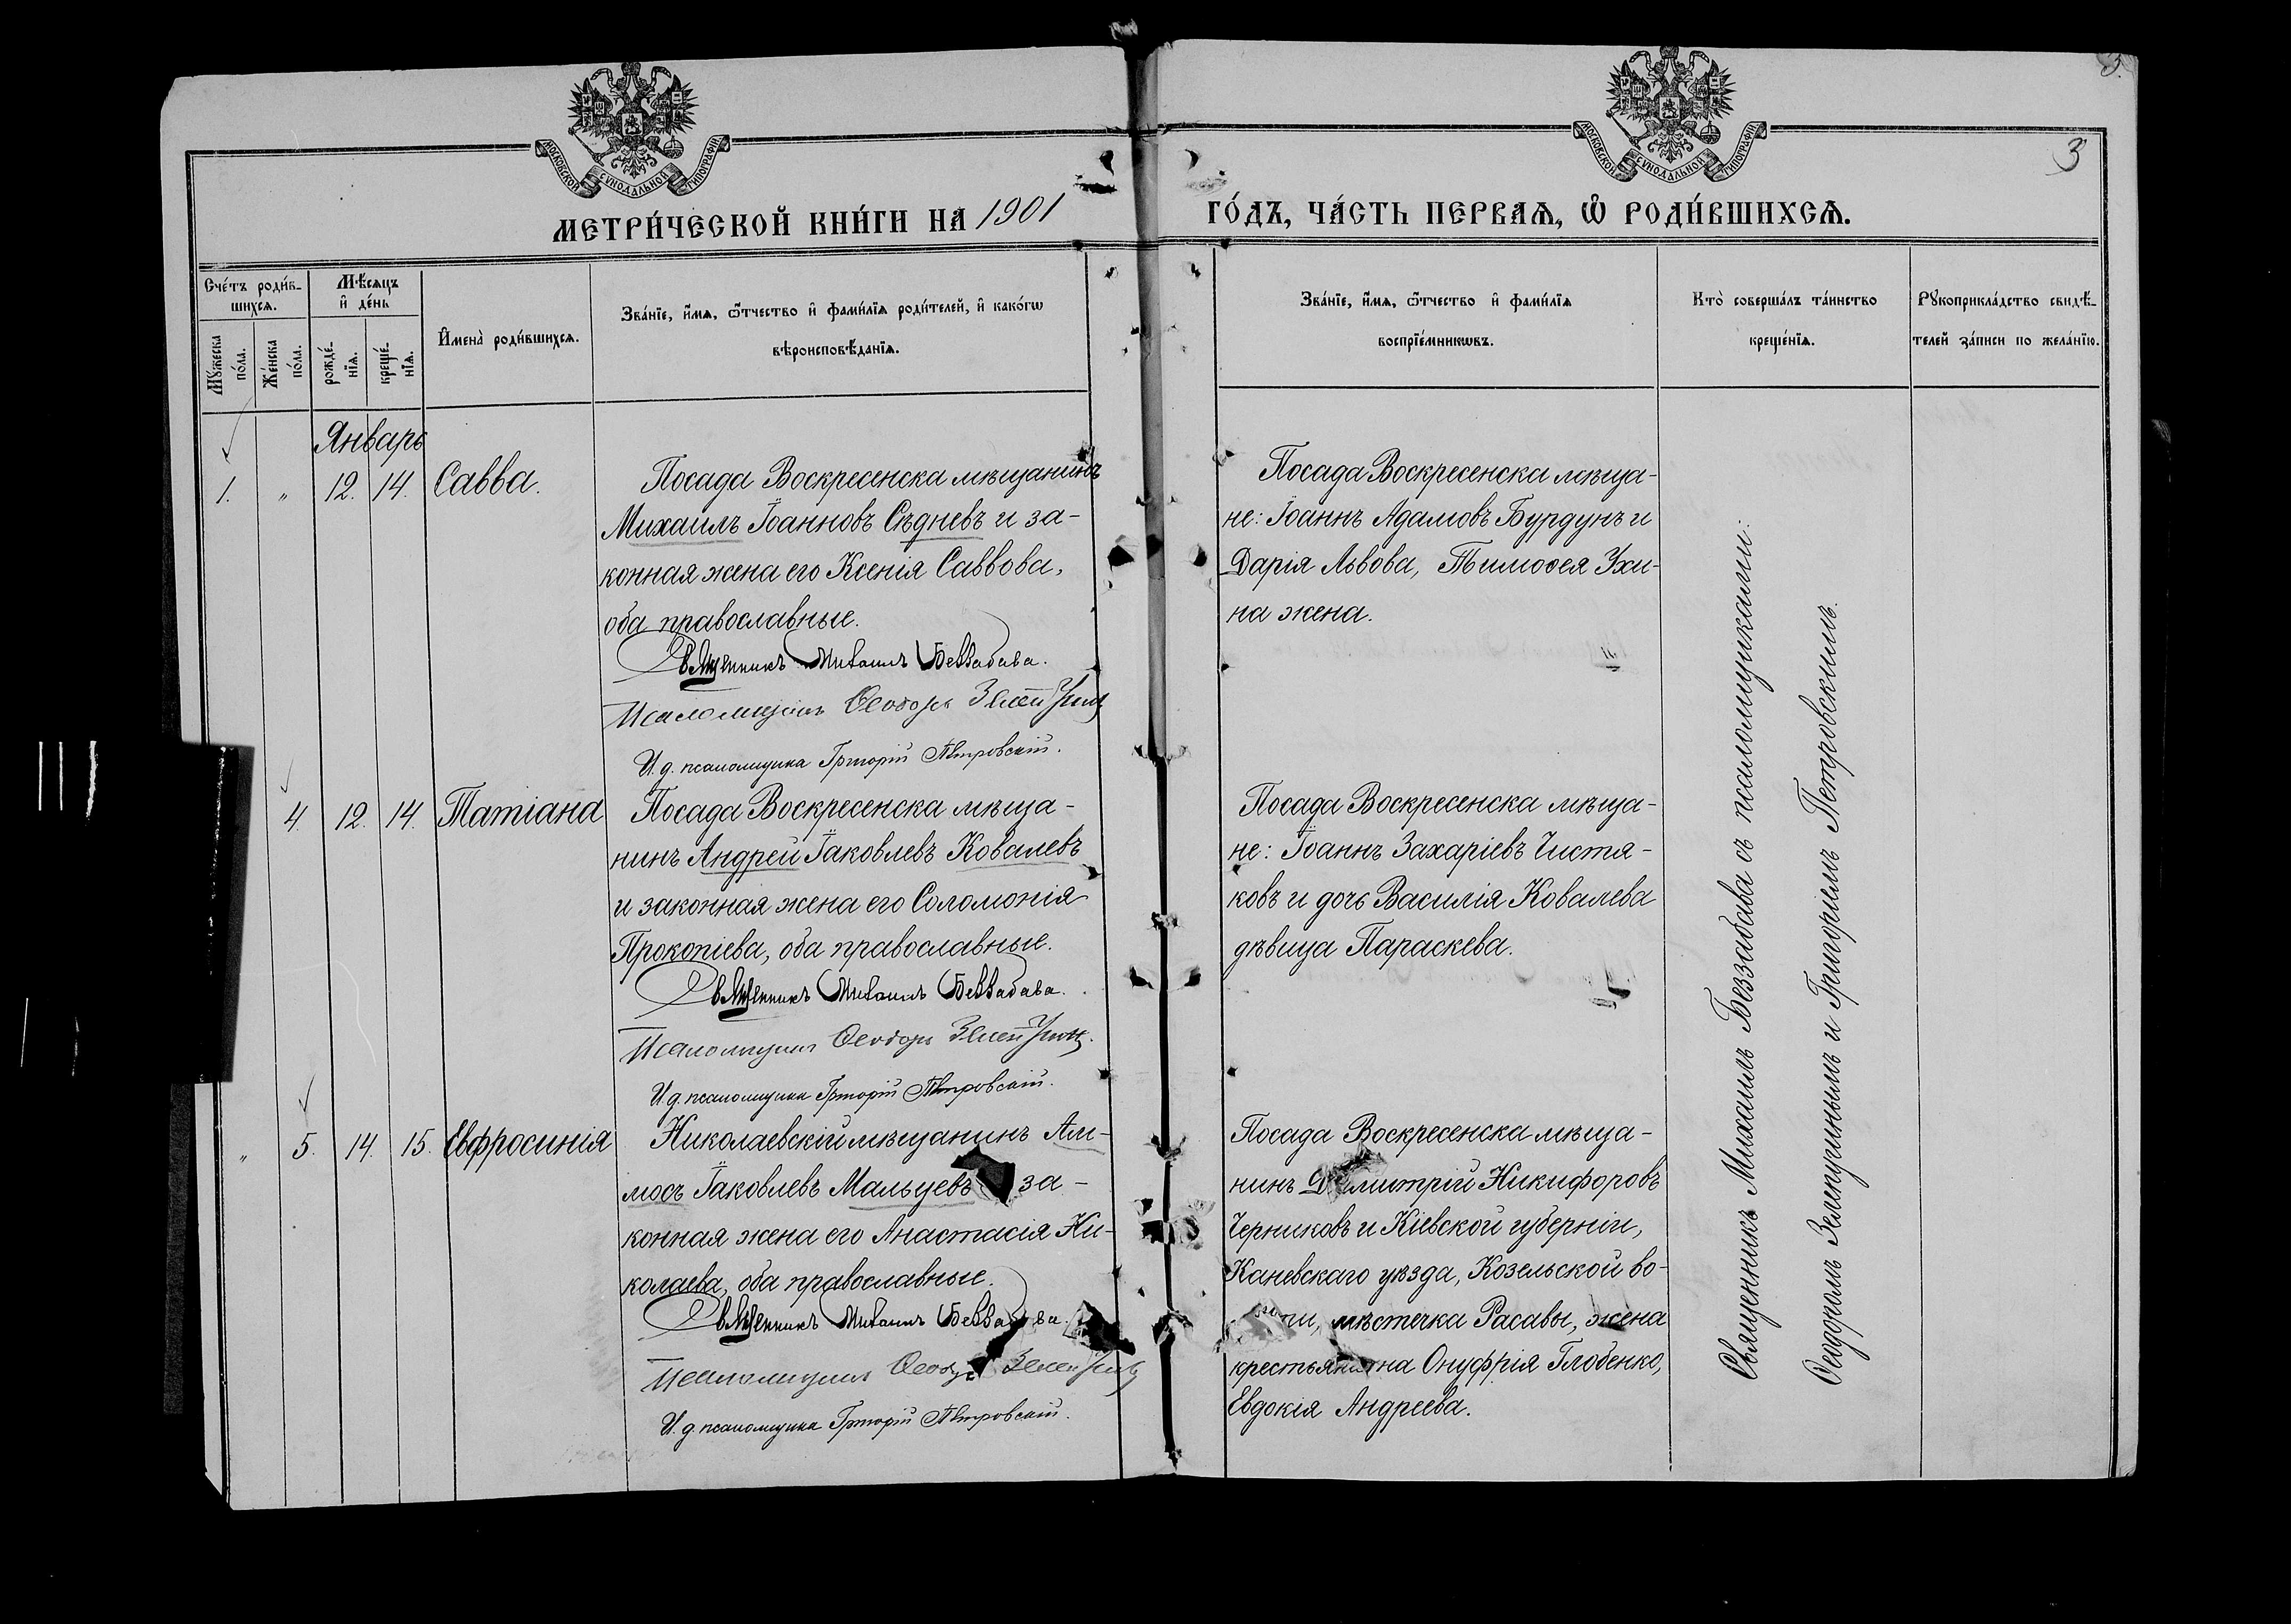 МОСКОВСКОЙ СѴНОДАЛЬНОЙ ТИПОГРАФІИ
МОСКОВСКОЙ СѴНОДАЛЬНОЙ ТИПОГРАФІИ
3
МЕТРИ́ЧЕСКОЙ КНИ́ГИ НА 1901
ГО́ДЪ, ЧА́СТЬ ПЕРВАѦ, Ѡ҆ РОДИ́ВШИХСѦ.
Сче́тъ роди́в-
шихсѧ.
Мꙋ́жеска
по́ла.
Же́нска
по́ла.
Мѣ́сѧцъ
и҆ де́нь
рожде́-
нїѧ.
креще́-
нїѧ.
И҆мена̀ роди́вшихсѧ.
Зва́нїе, и҆́мѧ, ѻ҆́тчество и҆ фами́лїѧ роди́телей, и҆ како́гѡ
вѣроисповѣ́данїѧ.
Зва́нїе, и҆́мѧ, ѻ҆́тчество и҆ фами́лїѧ
воспрїе́мникѡвъ.
Кто̀ соверша́лъ та́инство
креще́нїѧ.
Рꙋкоприкла́дство свидѣ́-
телей за́писи по жела́нїю.
Январь
1. " 12. 14. Савва.
Посада Воскресенска мѣщанинъ
Михаилъ Іоанновъ Сѣдневъ и за-
конная жена его Ксенія Саввова,
оба православные.
Священникъ Михаилъ Беззабава.
Псаломщикъ Ѳеодоръ
И. д. псаломщика Григорій Петровскій.
Посада Воскресенска мѣща-
не: Іоаннъ Адамовъ Бурдунъ и
Дарія Львова, Тимоѳея Ухи-
на жена.
4. 12. 14. Татіана
Посада Воскресенска мѣща-
нинъ Андрей Іаковлевъ Ковалевъ
и законная жена его Соломонія
Прокопіева, оба православные.
Священникъ Михаилъ Беззабава.
Псаломщикъ Ѳеодоръ
И. д. псаломщика Григорій Петровскій.
Посада Воскресенска мѣща-
не: Іоаннъ Захаріевъ Чистя-
ковъ и дочь Василія Ковалева
дѣвица Параскева.
" 5. 14. 15. Евфросинія
Николаевскій мѣщанинъ Ам-
мосъ Іаковлевъ Мальцевъ за-
конная жена его Анастасія Ни-
колаева, оба православные.
Священникъ Михаилъ Беззабава.
Псаломщикъ
И. д. псаломщика Григорій Петровскій.
Посада Воскресенска мѣща-
нинъ Димитрій Никифоровъ
Черниковъ и Кіевской губерніи,
Каневскаго уѣзда, Козельской во-
мѣстечка Расавы, жена
крестьянина Онуфрія Глобенко,
Евдокія Андреева.
Священникъ Михаилъ Беззабава съ псаломщиками:
Ѳеодоромъ и Григоріемъ Петровскимъ.